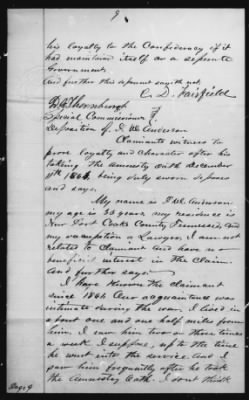 9
his loyalty to the Confederacy if it
had maintained itself as a seperate
Government
And further this deponent sayeth not.
C. D. Fairfield
Thornburgh
Special Commissioner
Deposition of J. W. Anderson
Claimants witness to
prove loyalty and character after his
taking the amnesty oath december
11th 1864, being duly sworn deposes
and says.
My name is J W Anderson
my age is 33 years my residence is
New Port Cocke County Tennessee, and
my occupation a Lawyer, I am not
related to claimant and have no
beneficial interest in the claim.
And further says:
I have known the claimant
since 1861 Our acquaintance was
intimate during the war. I lived in
about one and one half miles from
him. I saw him two or three times
a week I suppose, up to the time
he went into the service and I
saw him frequently after he took
the Amnesty Oath. I dont think
Page 9